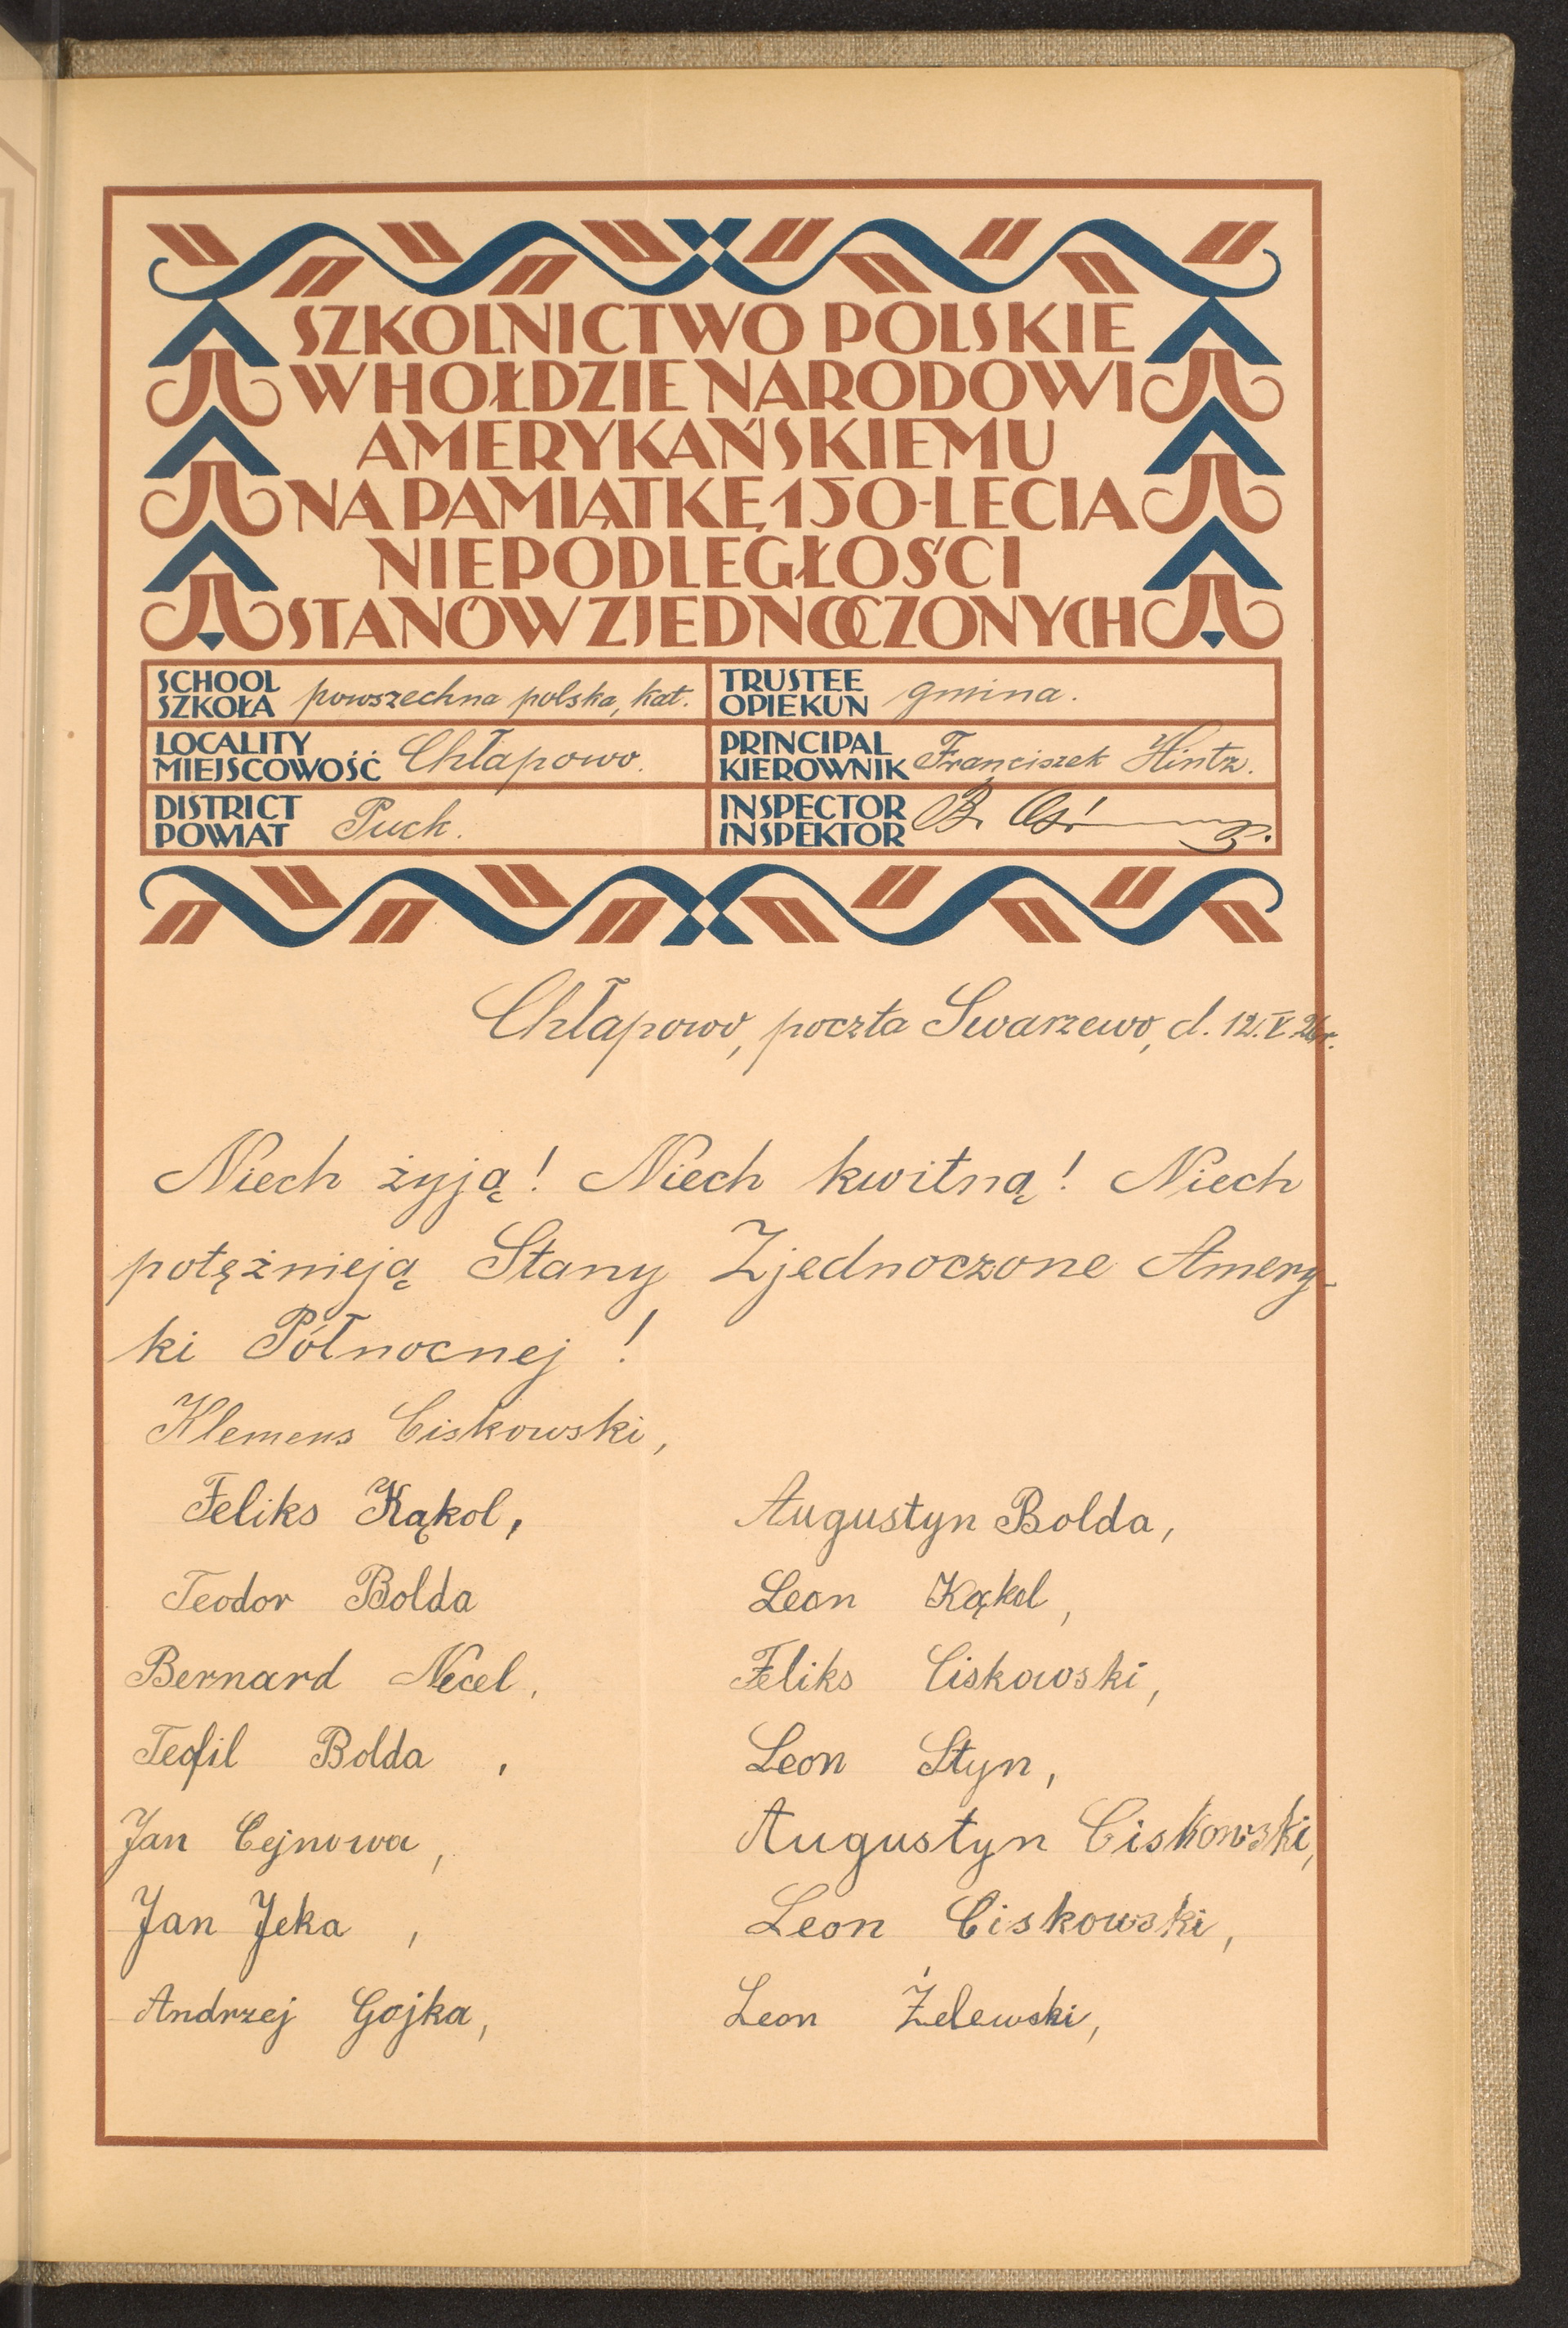 SZKOLNICTWO POLSKIE
W HOŁDZIE NARODOWI
AMERYKAŃSKIEMU
NA PAMIĄTKĘ 150-LECIA
NIEPODLEGŁOŚCI
STANÓW ZJEDNOCZONYCH
SCHOOL
SZKOŁA powszechna polska, kat.
TRUSTEE
OPIEKUN gmina.
LOCALITY
MIEJSCOWOŚĆ Chłapowo.
PRINCIPAL
KIEROWNIK Franciszek Hintz.
DISTRICT
POWIAT Puck.
INSPECTOR
INSPEKTOR B.
Chłapowo, poczta Swarzewo, d. 12.V.26r.
Niech żyją! Niech kwitną! Niech
potężnieją Stany Zjednoczone Amery-
ki Północnej!
Klemens Ciskowski,
Feliks Kąkol,
Teodor Bolda
Bernard Necel,
Teofil Bolda,
Jan Cejnowa,
Jan Jeka,
Andrzej Gojka,
Augustyn Bolda,
Leon Kąkol,
Feliks Ciskowski,
Leon Styn,
Augustyn Ciskowski,
Leon Ciskowski,
Leon Żelewski,